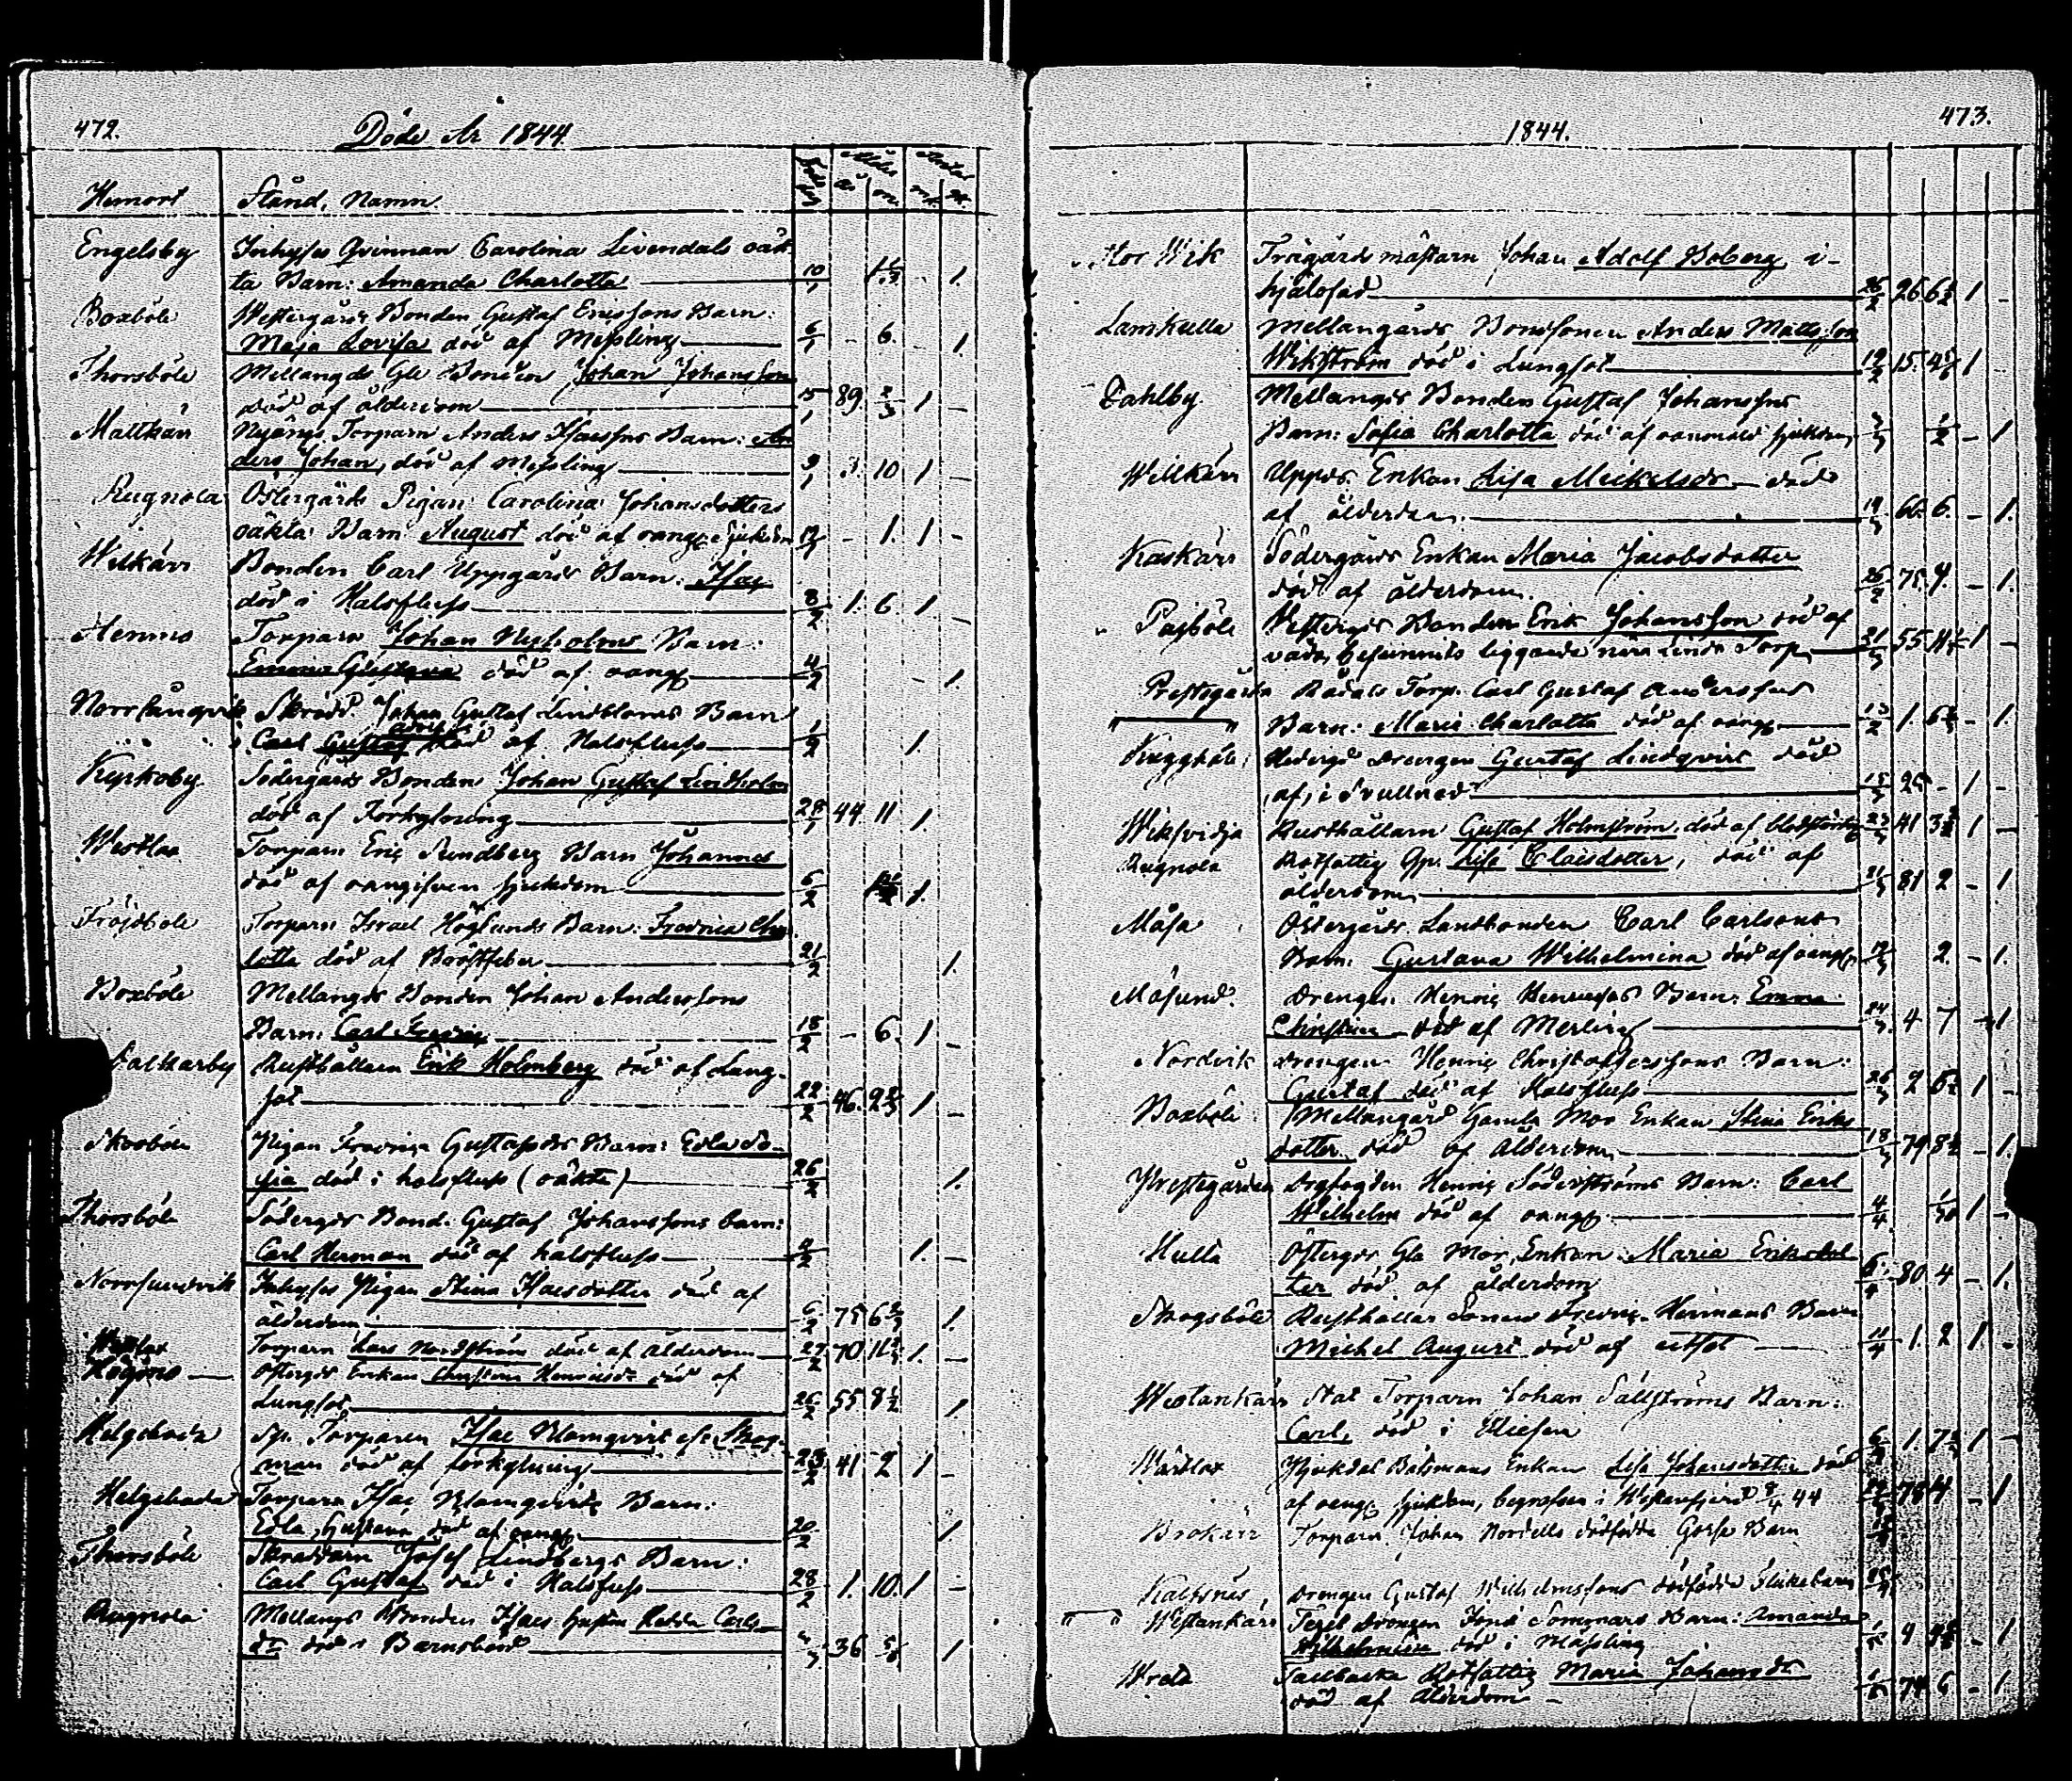 472.
Döde År 1844
Hemort Stånd, Namn Ålder år m. m. q.
Engelsby Inhyses Qvinnan Carolina Livendals oäk-
ta Barn: Amanda Charlotta 10/1 1.
Boxböle Westergårds Bonden Gustaf Ericssons Barn:
Maja Lovisa död af Messling 6/1 - 6. 1.
Thorsböle Mellangds Gle Bonden Johan Johansson
död af ålderdom 15/1 89 2/3 1 -
Mattkärr Nygårds Torparn Anders Isacssons Barn: An
ders Johan, död af Messling 9/1 3. 10 1 -
Rugnola Östergårds Pigan Carolina Johansdotters
oäkta Barn August död af oangf. Sjukdom - 1. 1 -
Wilkärr Bonden Carl Uppgårds Barn: Isac
död i Halsfluss 8/2 1. 6 1 -
Torparn Johan Nyholms Barn:
Emma Gustava död af oangf. 4/2 - 1.
Norrsundvik Skrädd. Johan Gustaf Lindbloms Barn
Carl Gustaf Adolf död af Halsfluss 1/2 1.
Kyrkoby Södergårds Bonden Johan Gustaf Lindholm
död af Förkylning 28/1 44 11 1.
Westlax Torparn Eric Sundberg Barn Johannes
död af oangifven sjukdom 6/2 1.
Fröjdböle Torparn Israel Höglunds Barn: Fredrica Char
lotta död af Bröstfeber 21/2 1.
Boxböle Mellangds Bonden Johan Anderssons
Barn: Carl Fredric 18/2 - 6. 1 -
Rusthållarn Erik Holmberg död af Lung-
sot 22/2 46. 9 2/3 1 -
Pigan Fredrica Gustafsdrs Barn: Edla So-
fia död i halsfluss (oäkta) 26/2 1.
Thorsböle Södergds Bond. Gustaf Johanssons barn:
Carl Herman död af halsfluss 4/2 1. -
Norrsundvik Inhyses Pigan Stina Isacsdotter död af
ålderdom 6/2 75 6 1.
Westlax Torparn Lars Nordström död af ålderdom 27/2 70 11 1. -
Högmo Östergds Enkan Christina Henricsdr död af
Lungsot 26/2 55 8 1/2 1.
Helgeboda Sp. Torparen Isac Blomqvist
man död af förkylning 23/2 41 2 1 -
Helgeboda Torparn Isac Blomqvists Barn:
Edla Gustava död af oangf. 20/2 1.
Thorsböle Skräddarn Josef Lindbergs Barn:
Carl Gustaf död i Halsfluss 28/2 1. 10. 1 -
Rugnola Mellangds Bonden Isacs hustru Hedda Carls
dr död i Barnsbörd 36 1
473.
1844.
Stor Wik Trägårdsmästarn Johan Adolf Boberg i-
hjälslad 25/2 26 6 1 -
Lamkulla Mellangårds Bondsonen Anders Mattsson
Wikström död i Lungsot 19/2 15. 1
Dahlby Mellangds Bonden Gustaf Johanssons
Barn: Sofia Charlotta död af sjukdom 1/2 - 1.
Wilkärr Uppgds. Enkan Lisa Mickelsdr död
af ålderdom 66. 6. - 1.
Kaskärr Södergårds Enkan Maria Jacobsdotter
död af ålderdom. 26/2 75. 9. - 1.
Pajböle Westergds Bonden Erik Johansson död af
våda, befunnits liggande nära Linds Torp 21/3 55 1 -
Prestegården Torp. Carl Gustaf Anderssons
Barn: Maria Charlotta död af oangf. 1. - 1.
Nedergds Drengen Gustaf Lindqvist död
af, i drullnad 15/3 25 - 1 -
Wiksvidja Rusthållarn Gustaf Holmström, död af blodstörtn. 41 1 -
Rugnola Rotfattig Gp. Lisa Claesdotter, död af
ålderdom 21/3 81 2 - 1
Måsa Östergårds Landbonden Carl Carlssons
Barn: Gustava Wilhelmina död af oangf. 2. - 1.
Måsund. Drengen Henric Henricssons Barn: Emma
Christina död af Messling 24/3 4 7 - 1
Nordvik Drengen Henric Christofferssons Barn:
Gustaf död af Halsfluss 26/3 2 1 -
Boxböle Mellangård Gamla Mor Enkan Stina Eriks
dotter död af Ålderdom 18/3 79 - 1.
Prestegården Drgfogden Henric Söderströms Barn: Carl
Wilhelm död af oangf. 4/4 1 -
Hulla Östergds Gla Mor, Enkan Maria Eriksdot
ter död af ålderdom 6/4 80 4 - 1.
Skogsböle Rusthållar Sonen Fredric Hermans Barn
Michel August död af 11/4 1. 2 1. -
Westankärr Stat Torparn Johan Sällströms Barn:
Carl, död i 6/4 1. 1 -
Wårtlax Båtsmans Enkan Lisa Johansdotter död
af oangf. sjukdom, begrafven i Westanfjerd 8/4 44 - 1
Brokärr Torparn Johan Nordells dödfödda Gosse Barn
Kalfsnäs Drengen Gustaf Wilhelmssons dödfödda Flickebarn
Westankärr Tegel Drengen Sommars Barn: Amanda
Wilhelmina död i Mässling 9 - 1
Wreta Backstu Rotfattig Maria Johansdr
död af Ålderdom - 74 6 - 1.